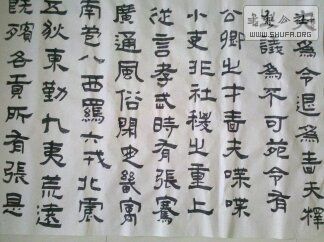 夫為令令退為嗇夫釋
之議為不可苑令有
公卿之才嗇夫喋喋
小吏非社稷之重上
從言孝武時有張騫
廣通風俗開定畿寓
南苞八西羈六戎北震
五狄東勤九夷荒遠
既殯各貢所有張是
WWW.SHUFA.ORG